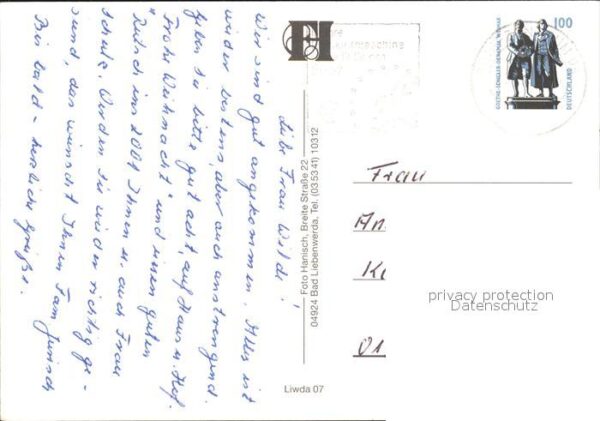 Liebe Frau Wilde!
Wir sind gut angekommen. Alles ist
wieder bestens, aber auch anstrengend.
Geben Sie bitte gut acht, auf Haus u. Hof.
"Frohe Weihnacht" und einen guten
Rutsch ins 2001 Ihnen u. auch Frau
Schulz. Werden Sie wieder richtig ge-
sund, das wünscht Ihnen Fam.
Bis bald - herzliche Grüße.
FH
Foto Hanisch, Breite Straße 22
04924 Bad Liebenwerda, Tel. (035341) 10312
Liwda 07
100
GOETHE-SCHILLER-DENKMAL WEIMAR
DEUTSCHLAND
Frau
privacy protection
Datenschutz
01